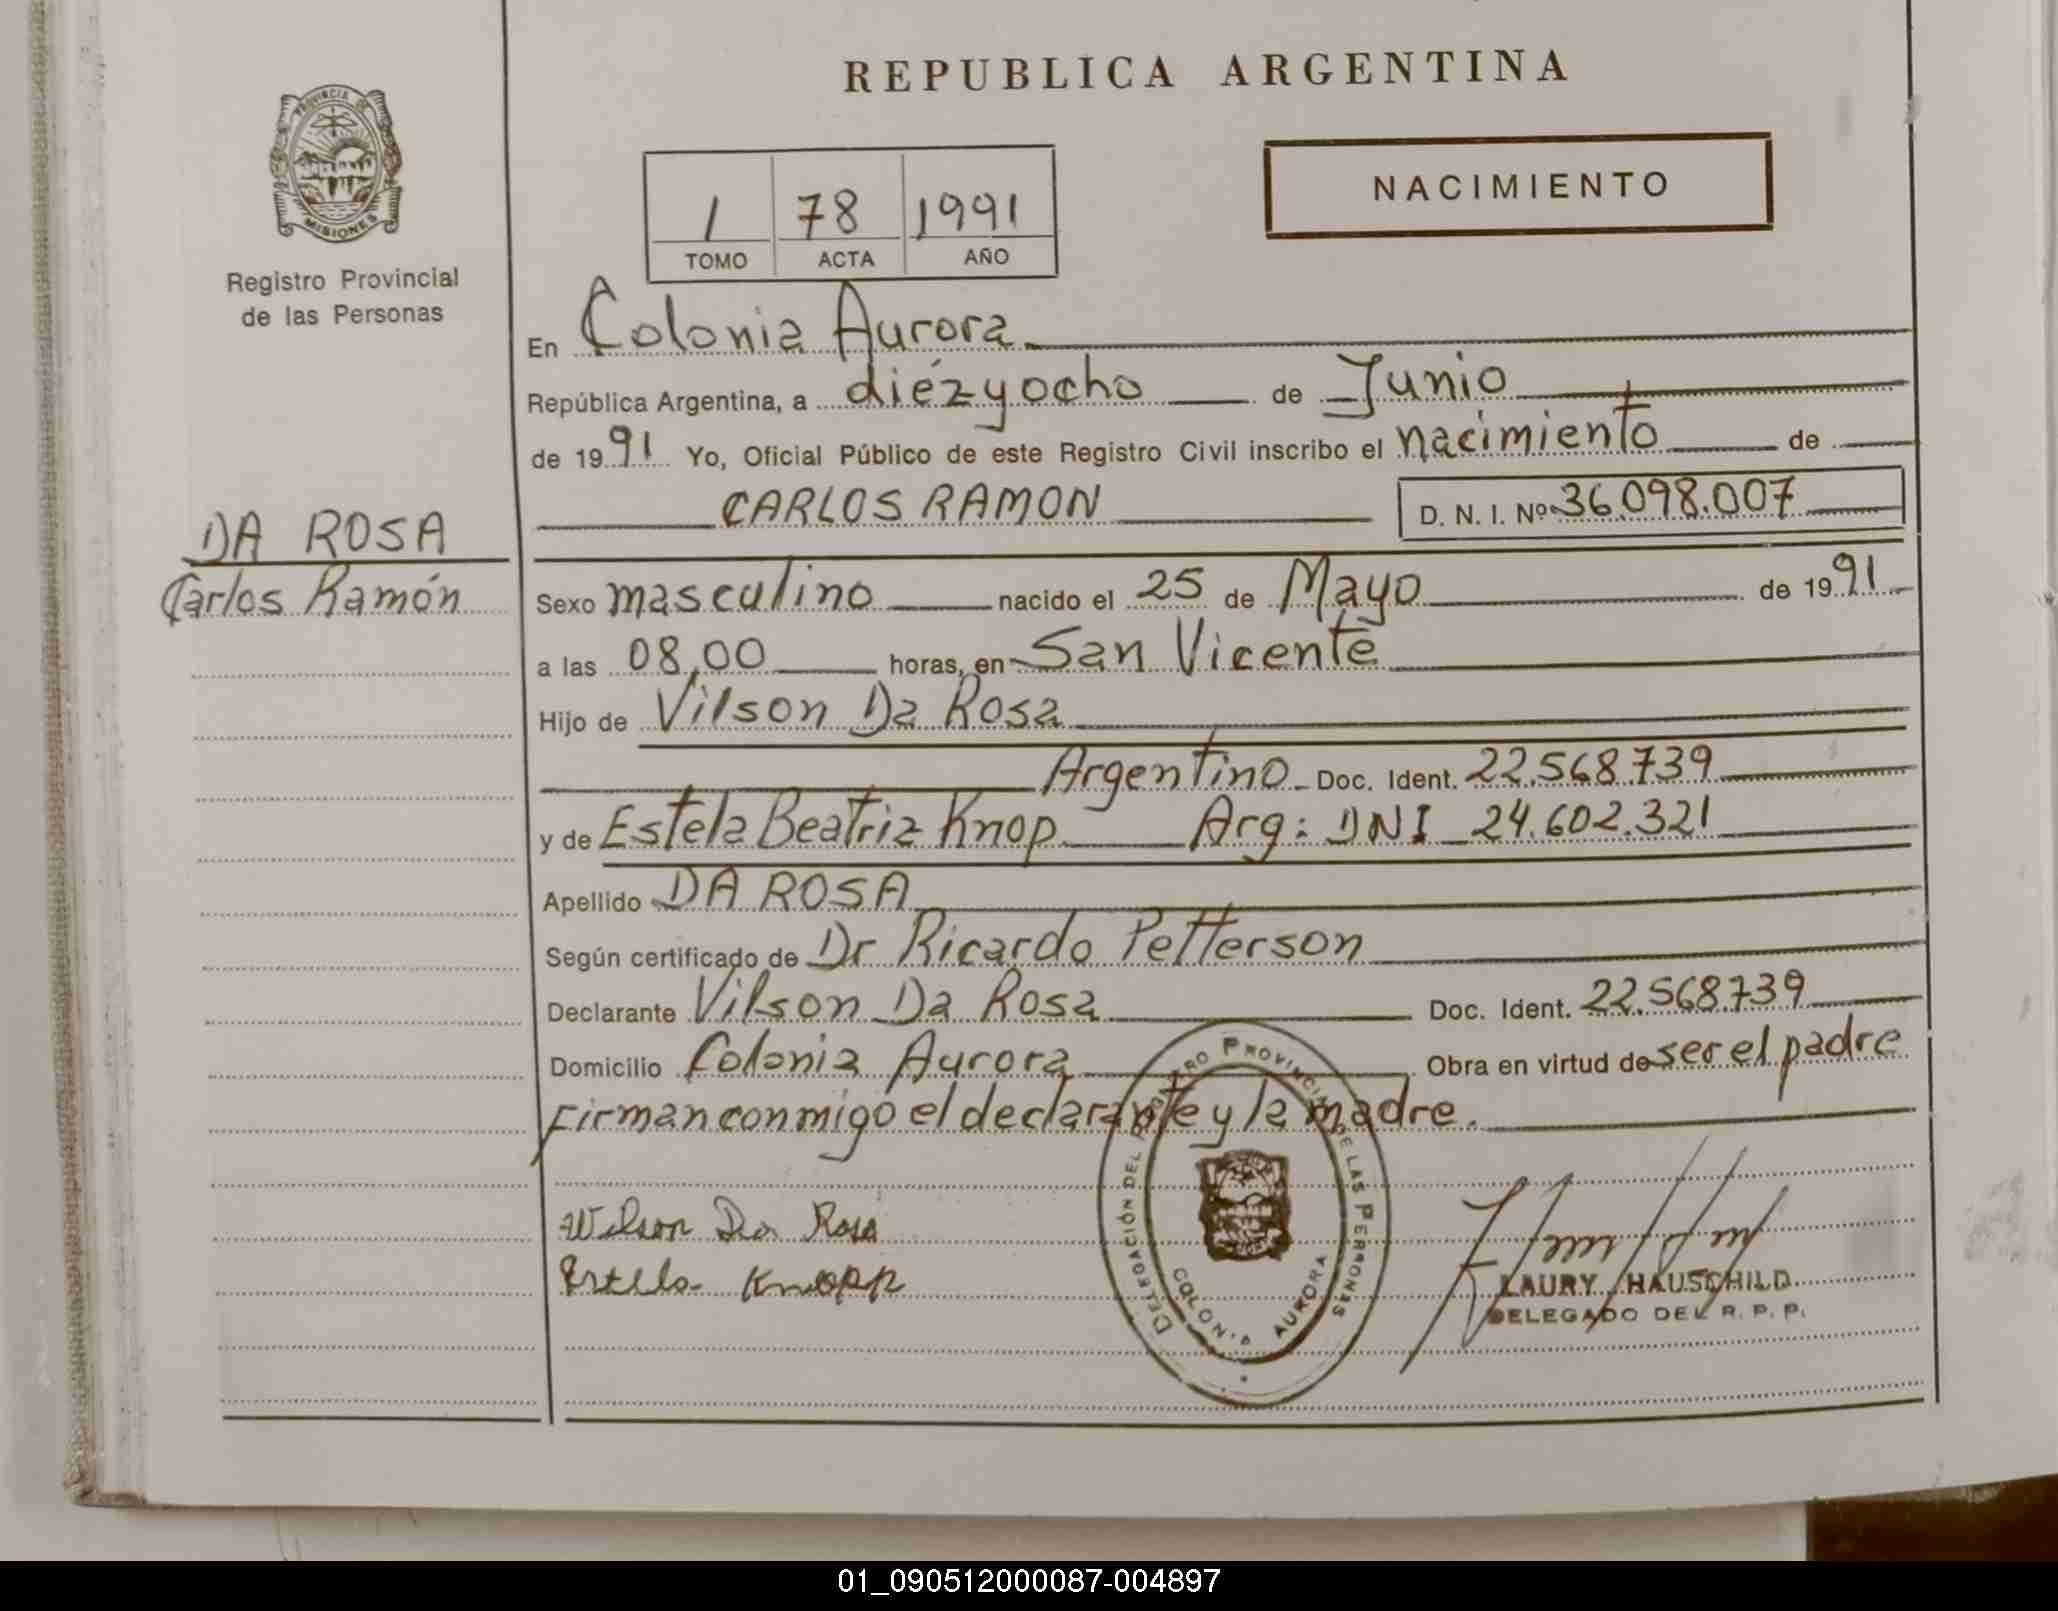 REPUBLICA ARGENTINA
PROVINCIA DE
MISIONES
Registro Provincial
de las Personas
NACIMIENTO
1 78 1991
TOMO ACTA AÑO
En Colonia Aurora
República Argentina, a diézyocho de Junio
de 1991 Yo, Oficial Público de este Registro Civil inscribo el nacimiento de
CARLOS RAMON D. N. I. Nº 36.098.007
DA ROSA
Carlos Ramón
Sexo masculino nacido el 25 de Mayo de 1991
a las 08,00 horas, en San Vicente
Hijo de Vilson Da Rosa
Argentino Doc. Ident. 22.568.739
y de Estela Beatriz Knop Arg: DNI 24.602.321
Apellido DA ROSA
Según certificado de Dr Ricardo Petterson
Declarante Vilson Da Rosa Doc. Ident. 22.568.739
Domicilio Colonia Aurora Obra en virtud de ser el padre
Firman conmigo el declarante y la madre.
Wilson Da Rosa
Estela Knopp
DELEGACIÓN DEL REGISTRO PROVINCIAL DE LAS PERSONAS
COLONIA AURORA
LAURY HAUSCHILD
DELEGADO DEL R. P. P.
01_090512000087-004897